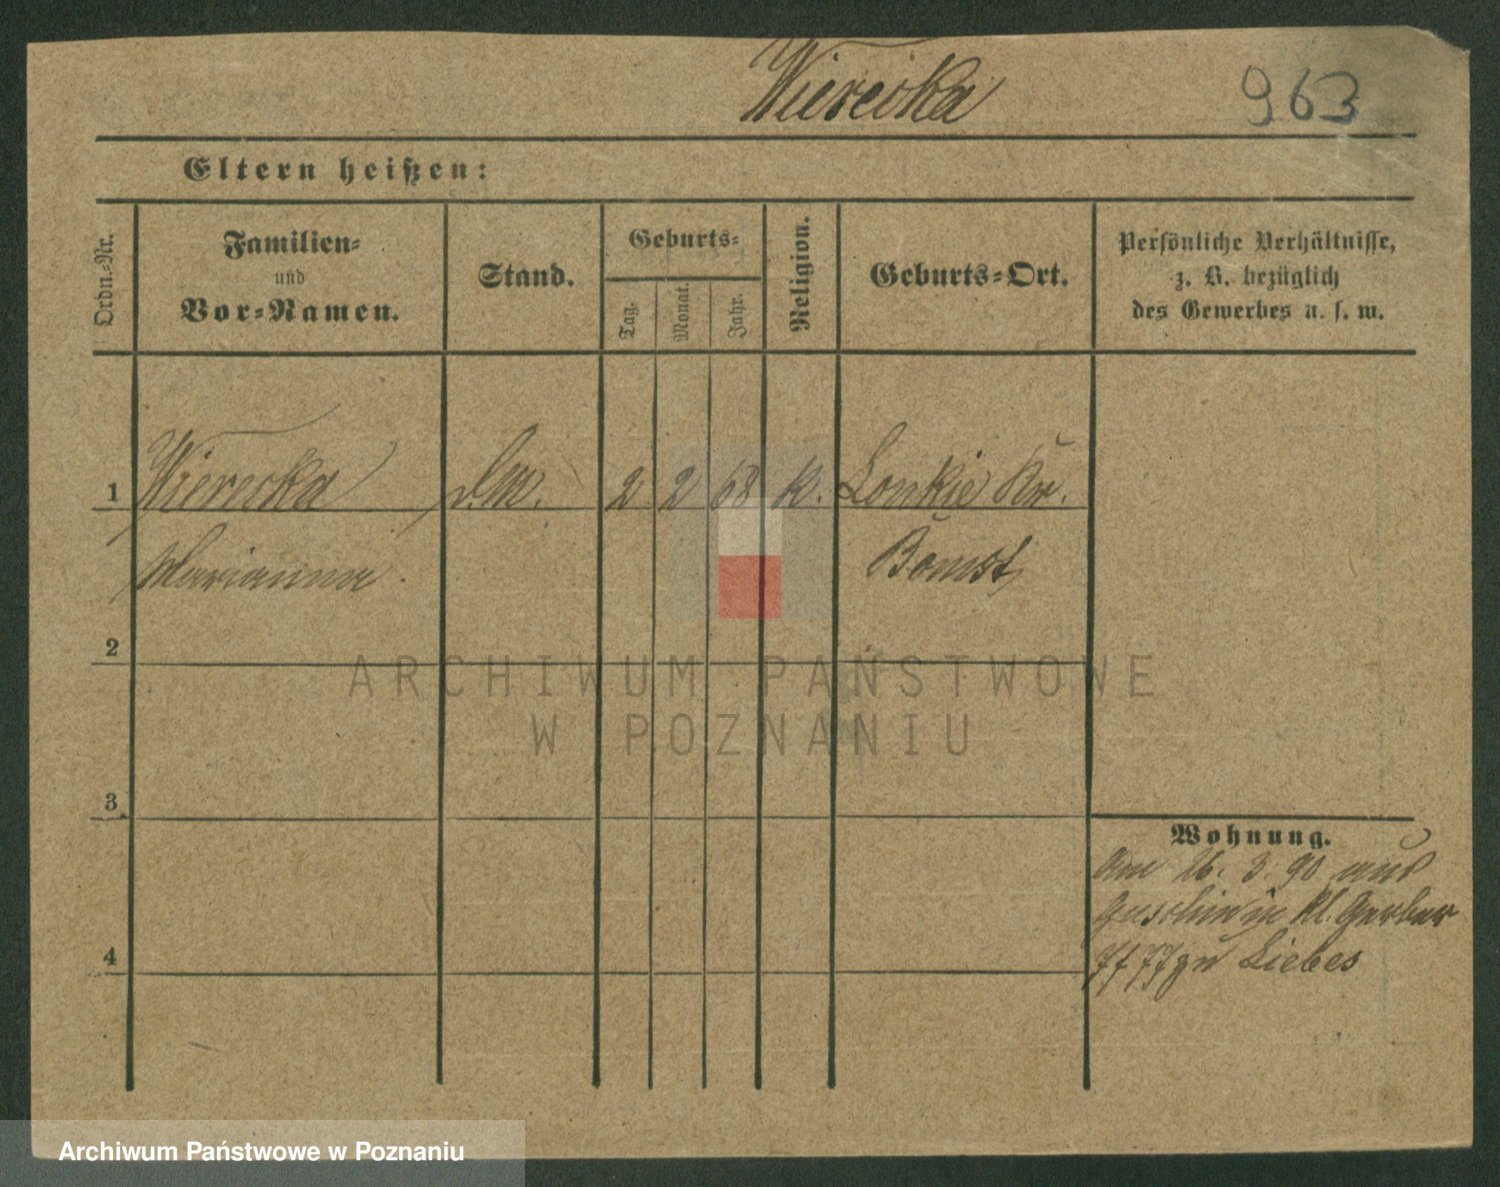 Wierecka
963
Eltern heißen:
Ordn.-Nr.
Familien-
und
Vor-Namen.
Stand.
Geburts-
Tag.
Monat.
Jahr.
Religion.
Geburts-Ort.
Persönliche Verhältnisse,
z. B. bezüglich
des Gewerbes u. s. w.
1
Wierecka
2
2
68
k.
Lonkie Kr.
Marianna
Bomst
2
ARCHIWUM PAŃSTWOWE
W POZNANIU
3
Wohnung.
Am 26. 3. 90 aus
in Kl. Gerber
4
zu Liebes
Archiwum Państwowe w Poznaniu